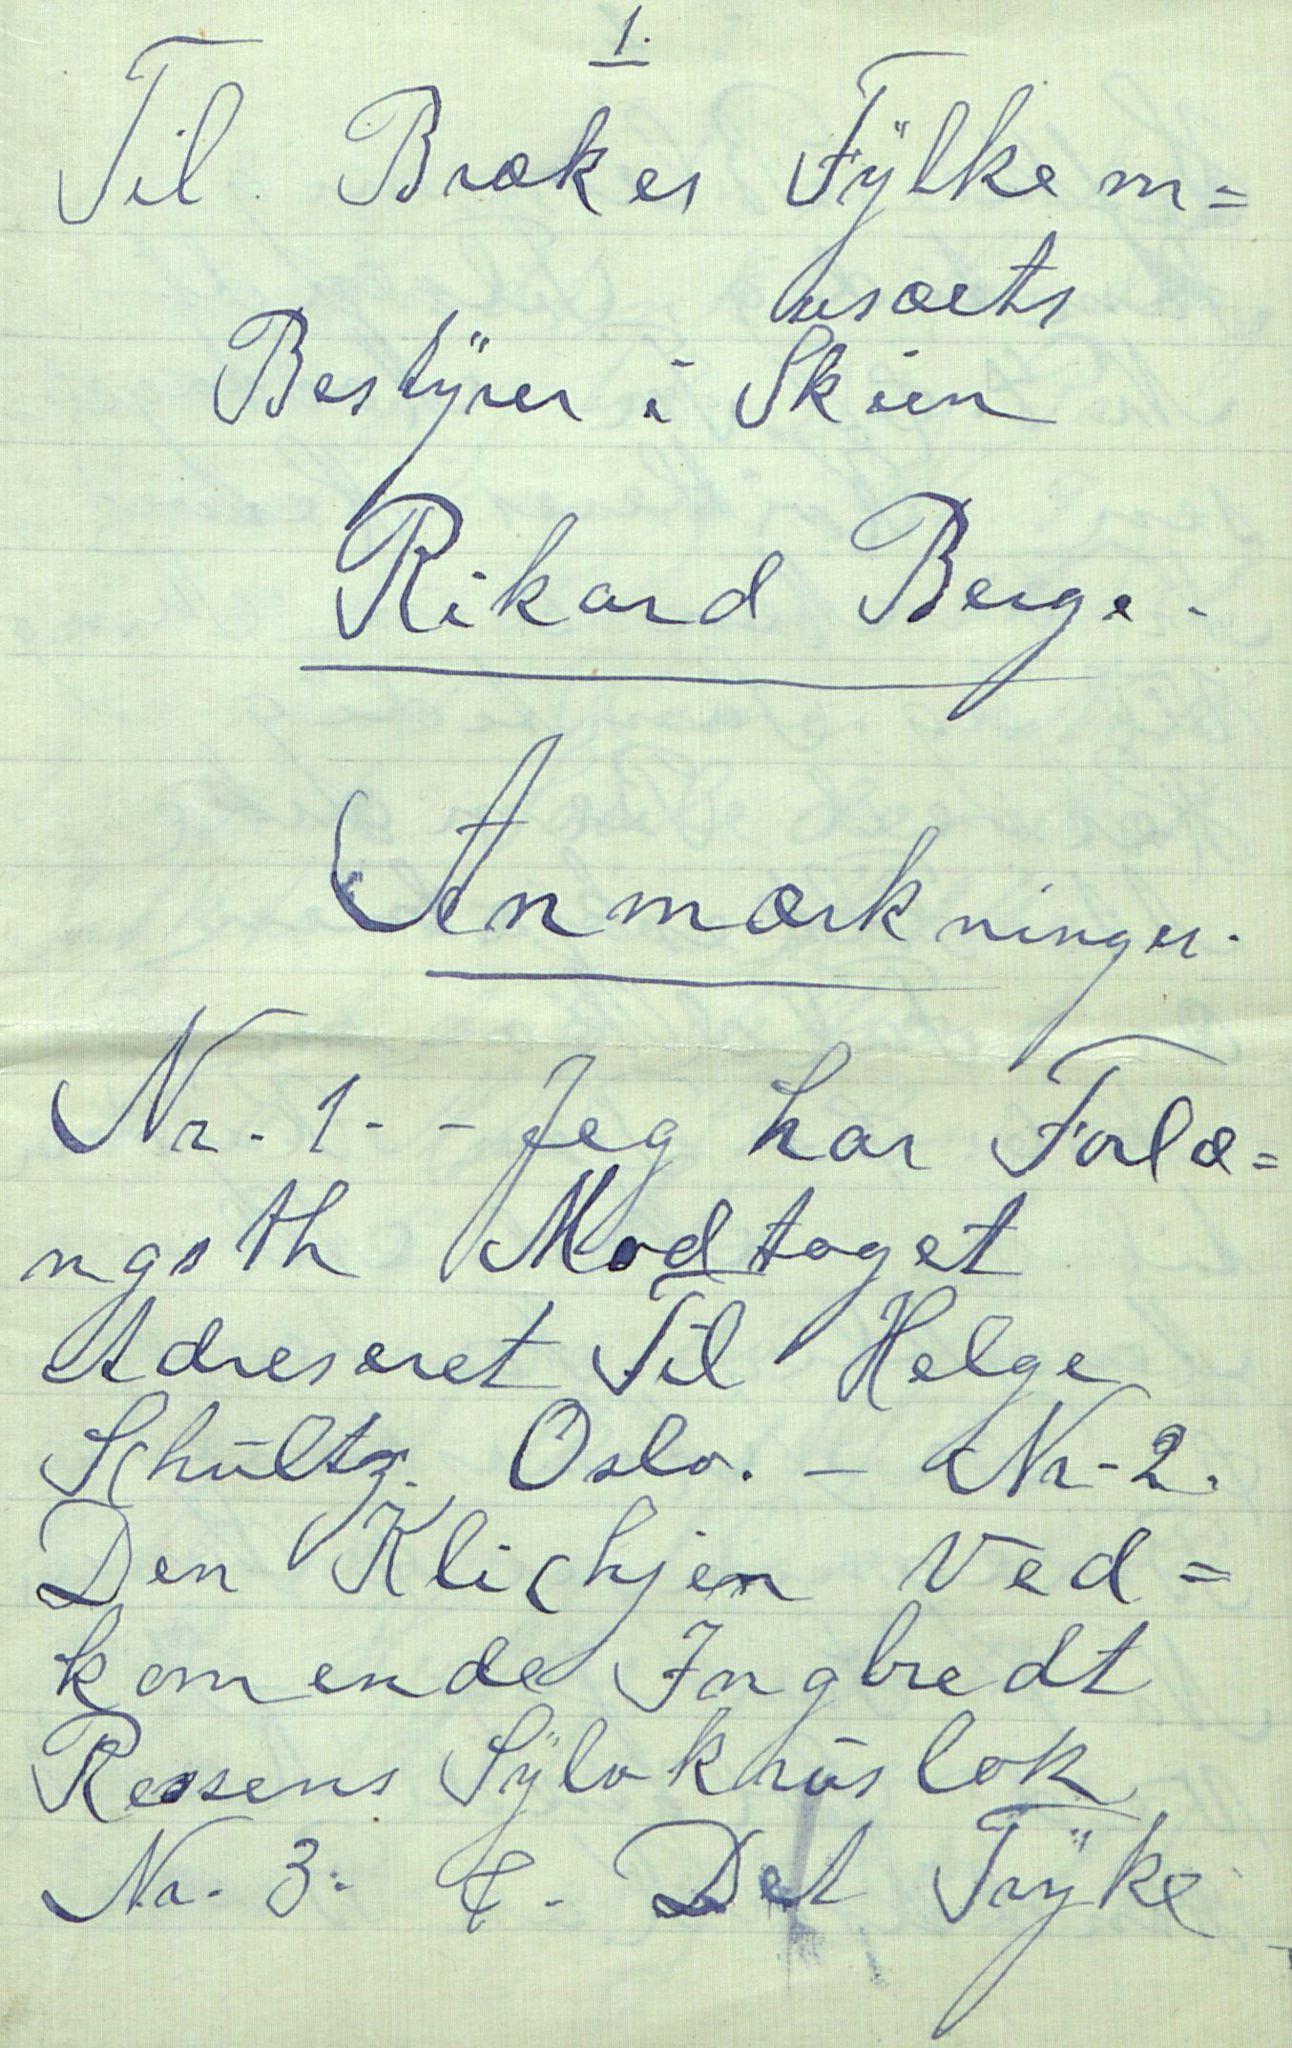 1.
Til. Brækes Fÿlkem=
usæets
Bestÿrer i Skien
Rikard Berge.
Anmærkninger.
Nr. 1. - Jeg har Forlæ=
ngsth Modtaget
Adreseret Til Helge
Schŭltz. Oslo. - Nr. 2.
Den Klichjen Ved=
komende Ingbredt
Resens Sÿlvknŭslok
Nr. 3. Det Trÿke